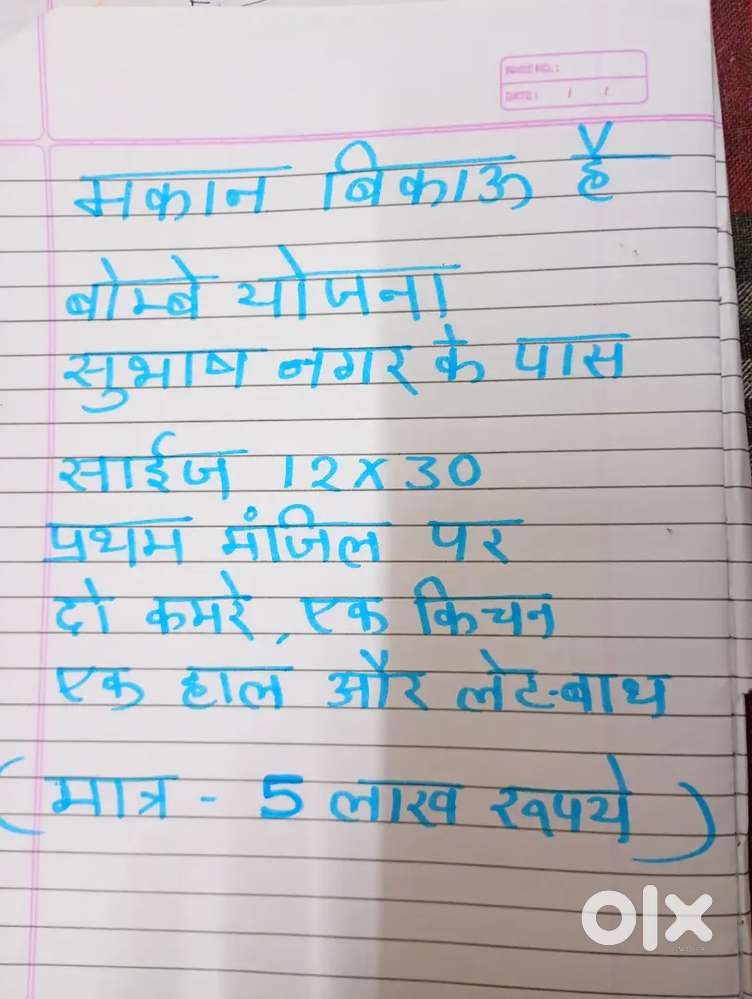 PAGE NO.:
DATE: / /
मकान बिकाऊ है
बोम्बे योजना
सुभाष नगर के पास
साईज 12 x 30
प्रथम मंजिल पर
दो कमरे, एक किचन
एक हाल और लेट-बाथ
(मात्र - 5 लाख रुपये)
olx